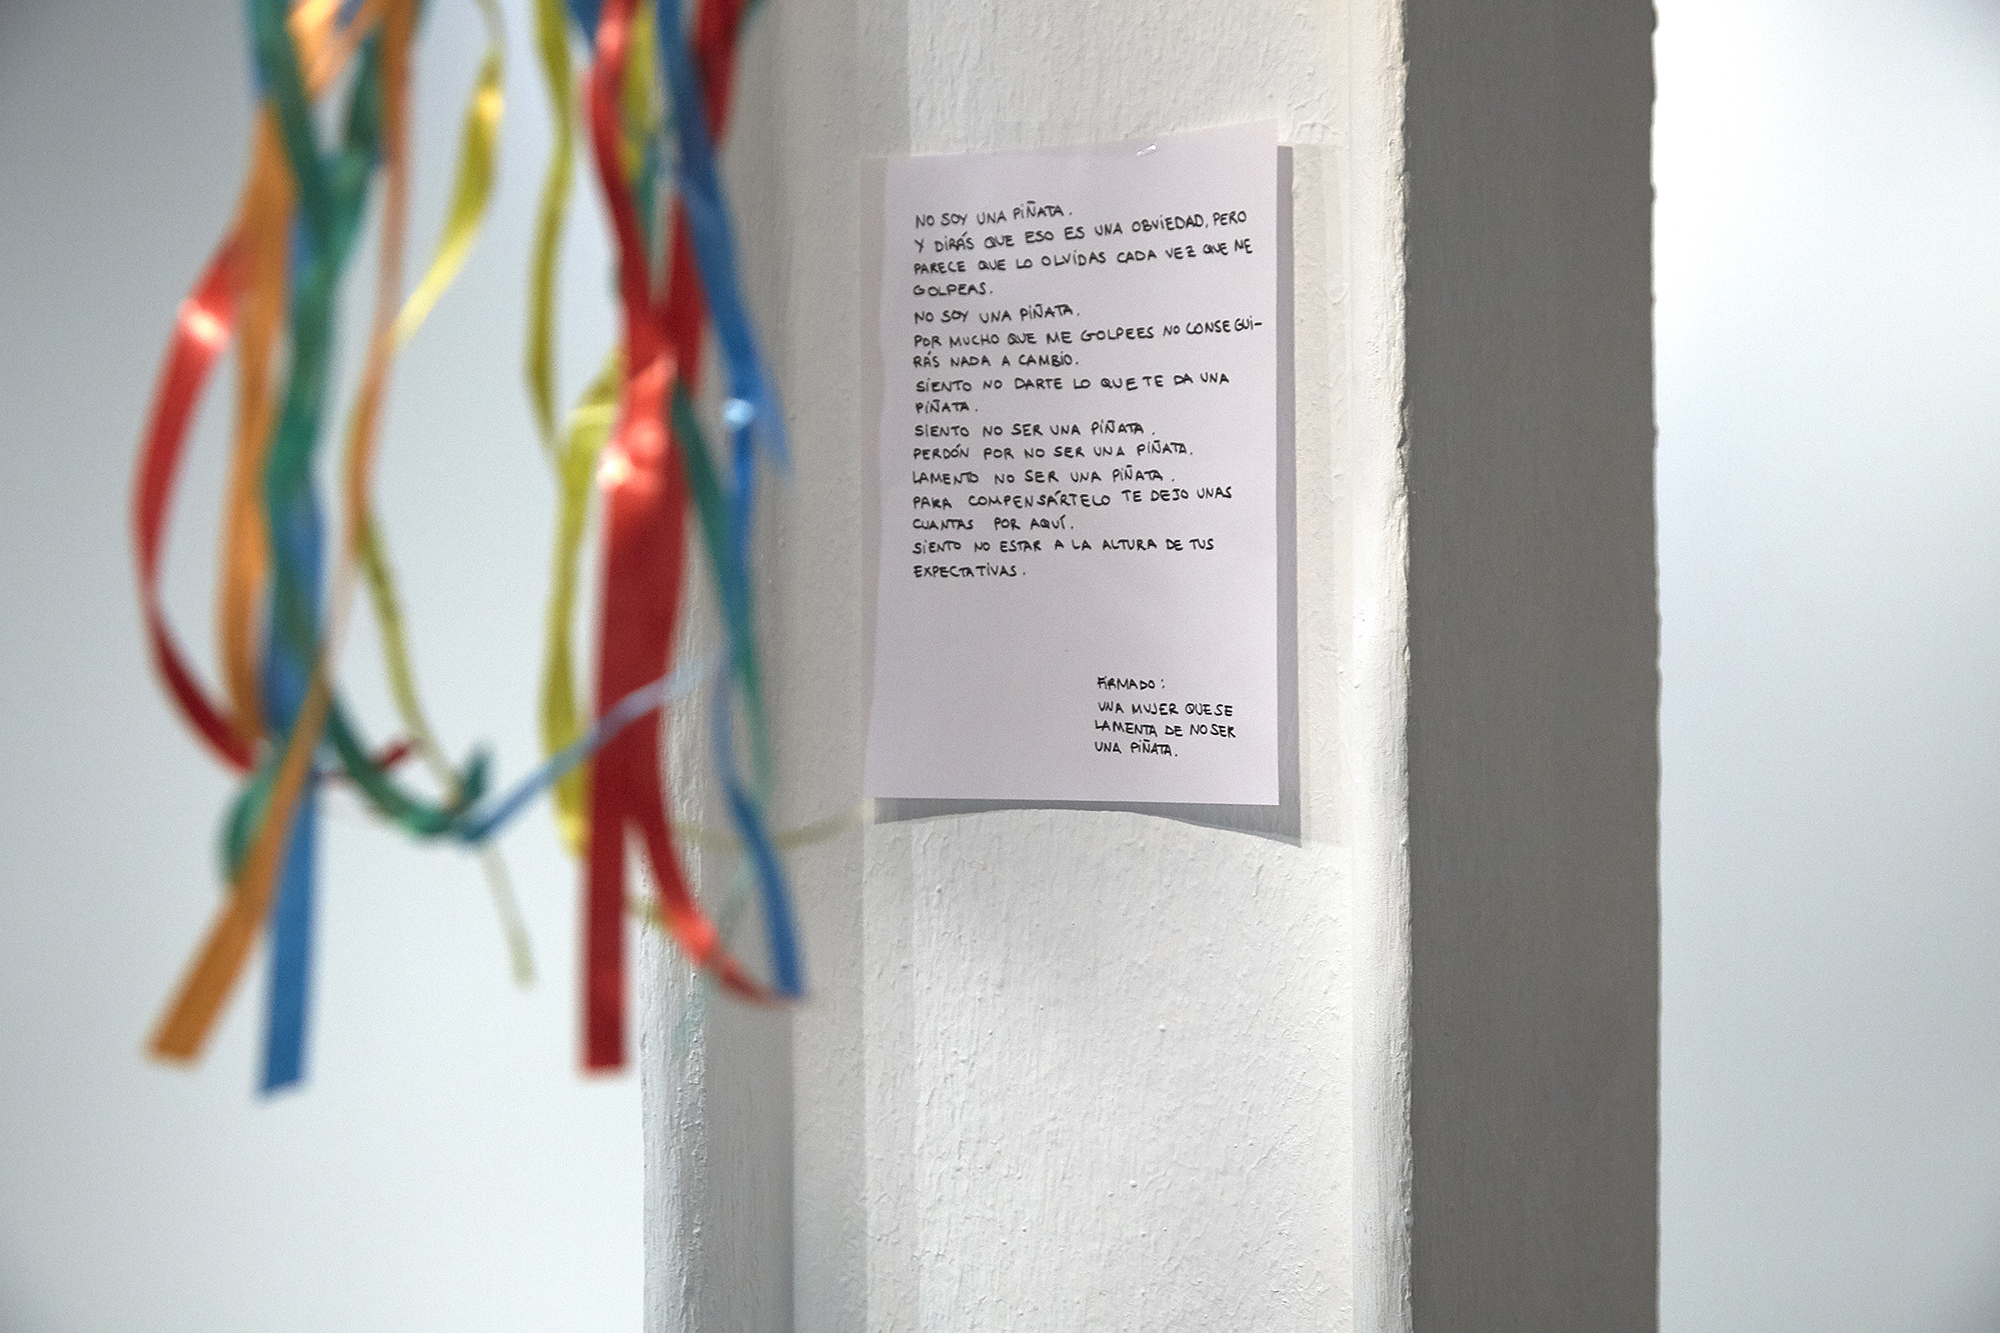 NO SOY UNA PIÑATA.
Y DIRÁS QUE ESO ES UNA OBVIEDAD, PERO
PARECE QUE LO OLVIDAS CADA VEZ QUE ME
GOLPEAS.
NO SOY UNA PIÑATA.
POR MUCHO QUE ME GOLPEES NO CONSEGUI-
RÁS NADA A CAMBIO.
SIENTO NO DARTE LO QUE TE DA UNA
PIÑATA.
SIENTO NO SER UNA PIÑATA.
PERDÓN POR NO SER UNA PIÑATA.
LAMENTO NO SER UNA PIÑATA.
PARA COMPENSÁRTELO TE DEJO UNAS
CUANTAS POR AQUÍ.
SIENTO NO ESTAR A LA ALTURA DE TUS
EXPECTATIVAS.
FIRMADO:
UNA MUJER QUE SE
LAMENTA DE NO SER
UNA PIÑATA.